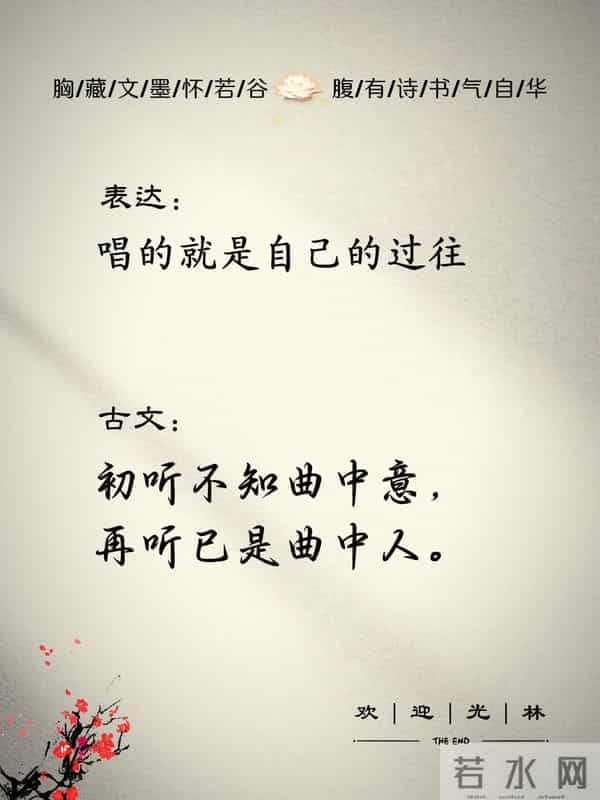 胸/藏/文/墨/怀/若/谷 腹/有/诗/书/气/自/华
表达：
唱的就是自己的过往
古文：
初听不知曲中意，
再听已是曲中人。
欢|迎|光|林
THE END
若水网